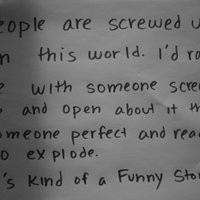 eople are screwed u
n this world. I'd ra
e with someone screw
and open about it th
omeone perfect and read
o explode.
's Kind of a Funny Stor